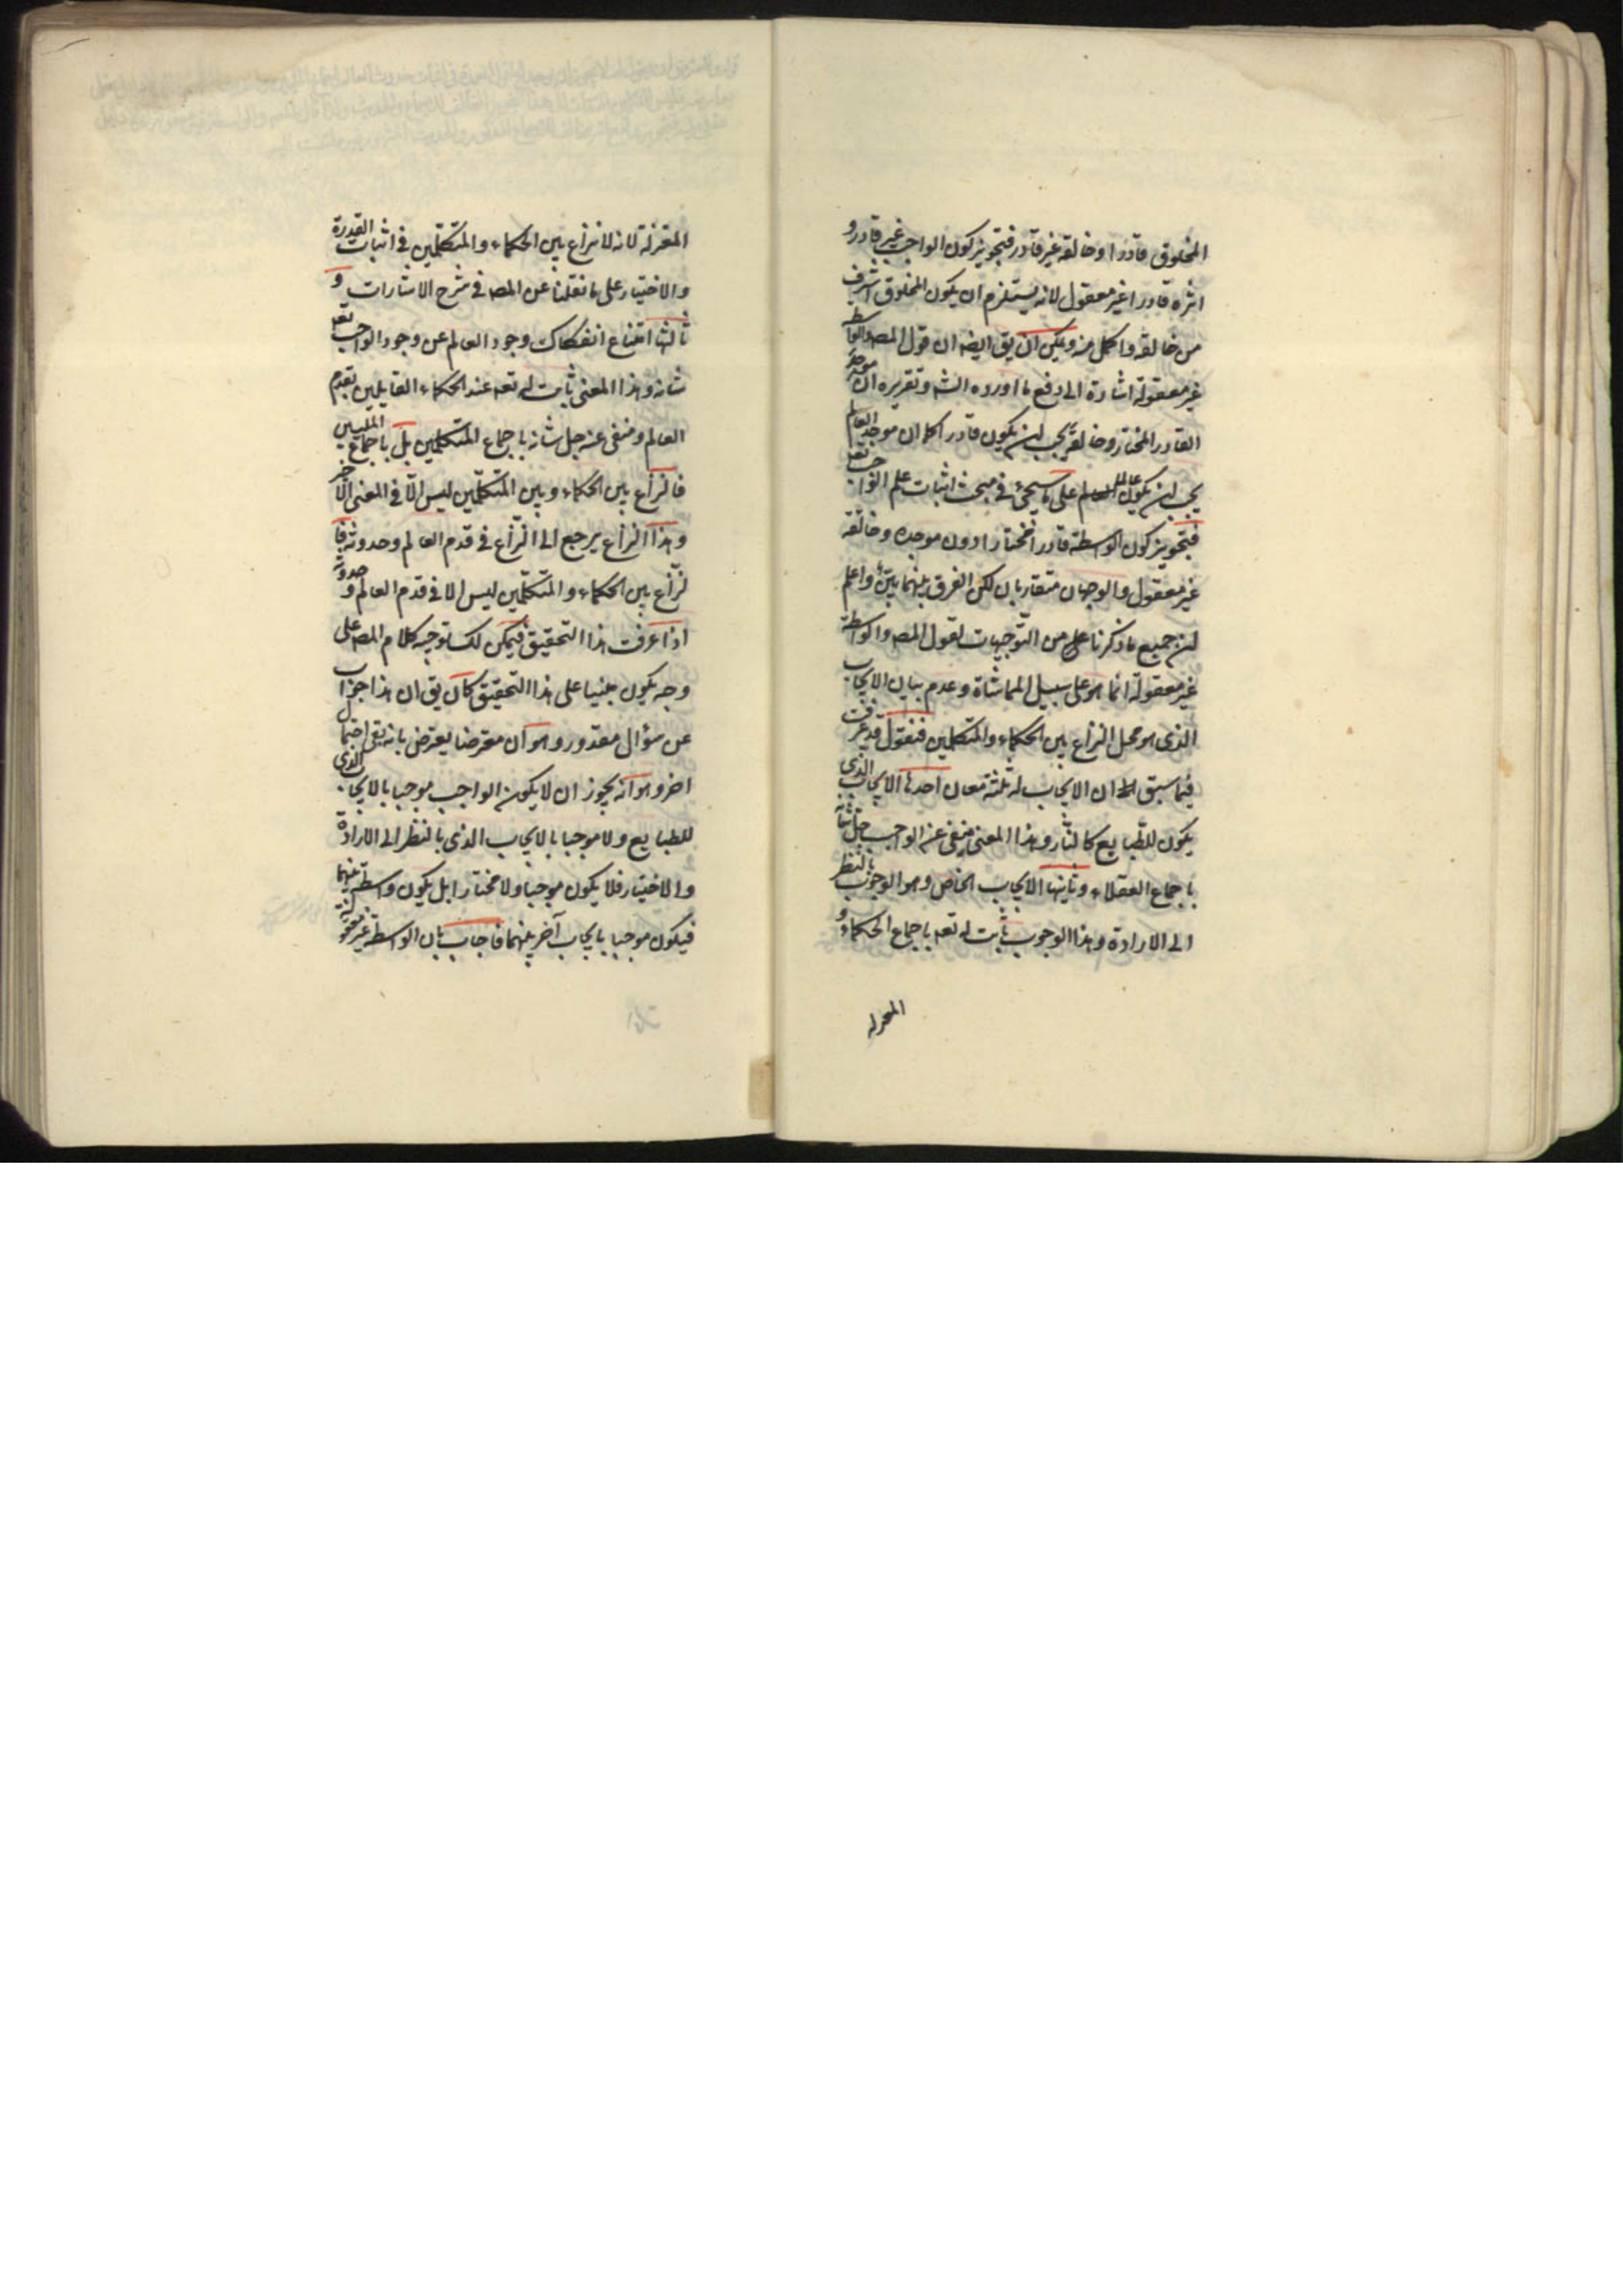 المخلوق قادرا وخالقه غير قادر فتجويز كون الواجب غير قادر و
اثره قادرا غير معقول لانه يستلزم ان يكون المخلوق اشرف
من خالقه واكمل منه ويمكن ان يق ايضه ان قول المصه والواسطة
غير معقولة اشارة الى دفع ما اورده الشه وتقريره ان موجد
القادر المختار وخالقه يجب ان يكون قادرا كما ان موجد العالم
يجب ان يكون عالما على ما سيجئ في مبحث اثبات علم الواجب تعه
فتجويز كون الواسطة قادرا مختارا دون موجده وخالقه
غير معقول والوجهان متقاربان لكن الفرق بينهما بيّن واعلم
ان جميع ما ذكرنا من التوجيهات لقول المصه والواسطة
غير معقولة انما هو على سبيل المماشاة وعدم بيان الايجاب
الذى هو محل النزاع بين الحكماء والمتكلمين فنقول قد عرفت
فيما سبق ان الايجاب له ثلثة معان احدها الايجاب الذي
يكون للطبايع كالنار وهذا المعنى منفى عنه الواجب جل شانه
باجماع العقلاء وثانيها الايجاب الخاص وهو الوجوب بالنظر
الى الارادة وهذا الوجوب ثابت له تعه باجماع الحكماء و
المعتزلة
المعتزلة لانه لا نزاع بين الحكماء والمتكلّمين في اثبات القدرة
والاختيار على ما نقلنا عن المصه في شرح الاشارات و
ثالثها امتناع انفكاك وجود العالم عن وجود الواجب تعه
شانه وهذا المعنى ثابت له تعه عند الحكماء القايلين بقدم
العالم ومنفى عنه جل شانه باجماع المتكلمين بل باجماع المليين
فالنزاع بين الحكماء وبين المتكلّمين ليس الّا في المعنى الاخير
وهذا النزاع يرجع الى النزاع في قدم العالم وحدوثه فا
لنزاع بين الحكماء والمتكلّمين ليس الا في قدم العالم وحدوثه
اذا عرفت هذا التحقيق فيمكن لك توجيه كلام المصه على
وجه يكون مبنيا على هذا التحقيق كان يق ان هذا جواب
عن سؤال مقدور وهو ان معترضا يعترض بانه بقى احتمال
اخر وهو انه يجوز ان لا يكون الواجب موجبا بالايجاب الذى
للطبايع ولا موجبا بالايجاب الذى بالنظر الى الارادة
والاختيار فلا يكون موجبا ولا مختارا بل يكون واسطة بينهما
فيكون موجبا بايجاب آخر بينهما فاجاب بان الواسطة غير معقولة